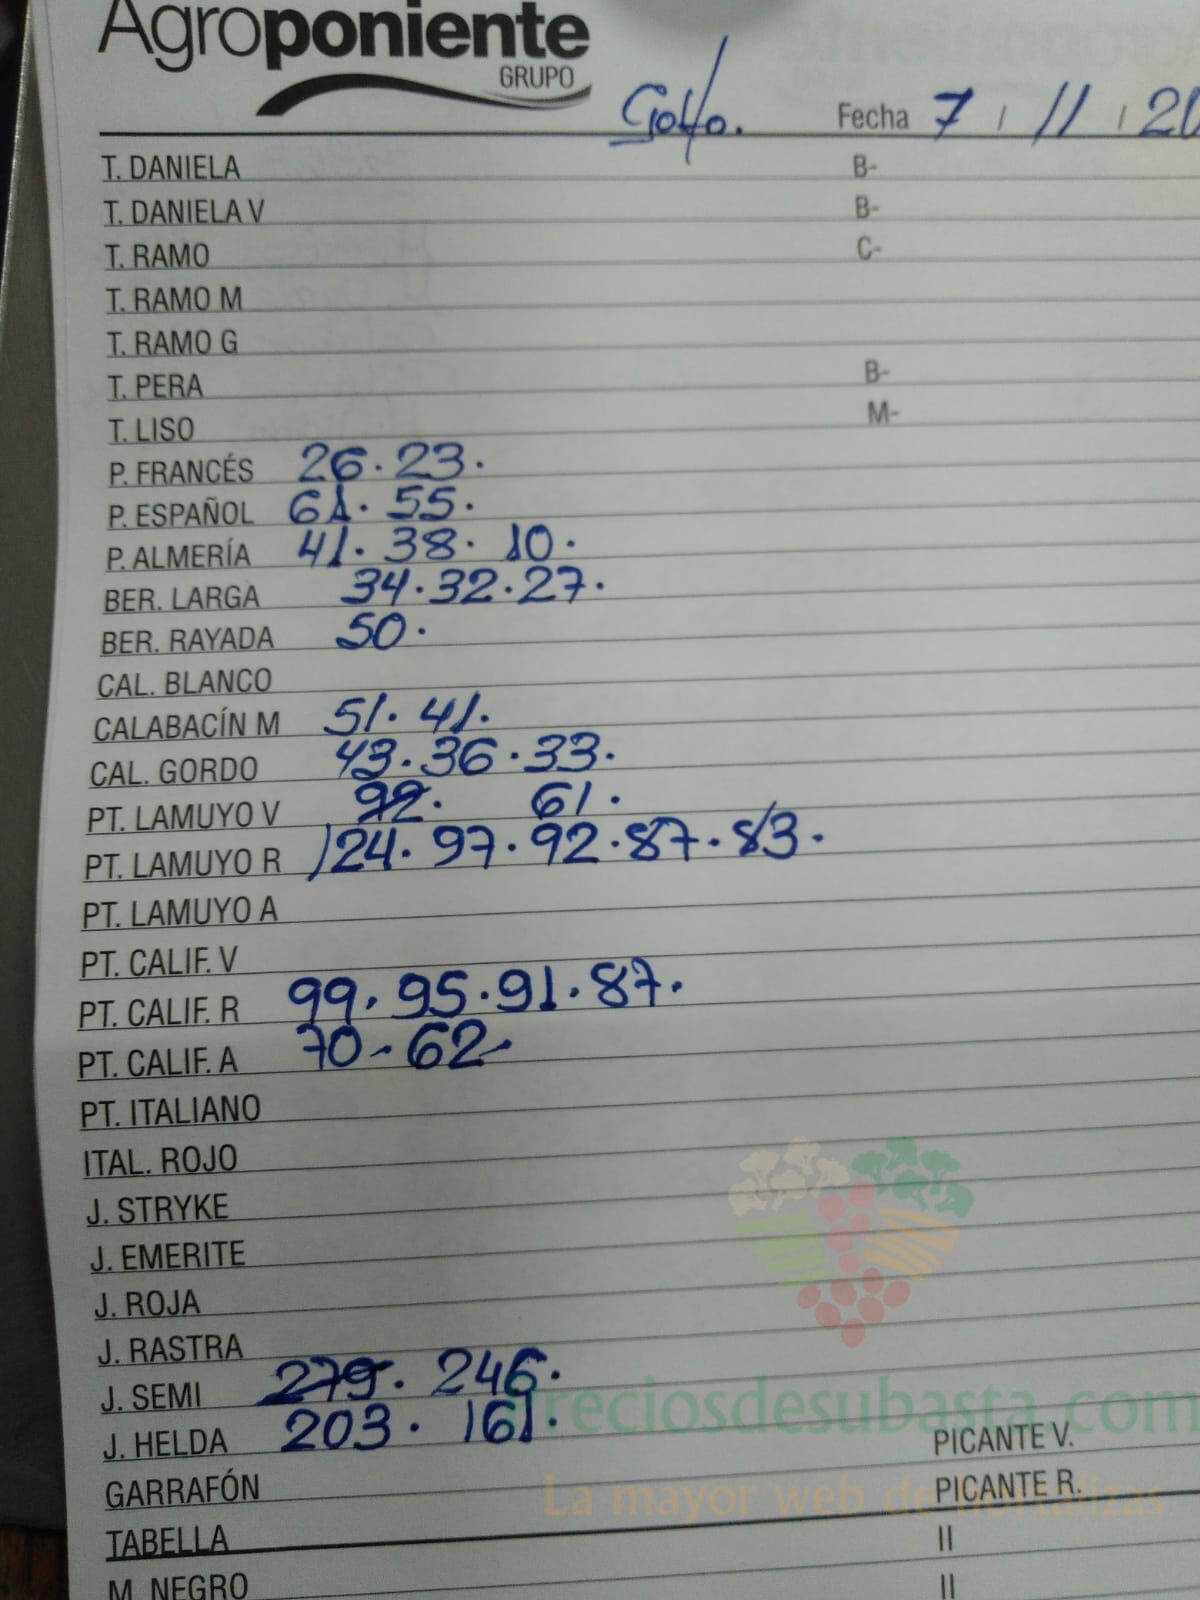 Agroponiente
GRUPO
Golfo. Fecha 7 / 11 / 20
T. DANIELA B-
T. DANIELA V B-
T. RAMO C-
T. RAMO M
T. RAMO G
T. PERA B-
T. LISO M-
P. FRANCÉS 26. 23.
P. ESPAÑOL 61. 55.
P. ALMERÍA 41. 38. 10.
BER. LARGA 34. 32. 27.
BER. RAYADA 50.
CAL. BLANCO
CALABACÍN M 51. 41.
CAL. GORDO 43. 36. 33.
PT. LAMUYO V 92. 61.
PT. LAMUYO R 124. 97. 92. 87. 83.
PT. LAMUYO A
PT. CALIF. V
PT. CALIF. R 99. 95. 91. 87.
PT. CALIF. A 70. 62.
PT. ITALIANO
ITAL. ROJO
J. STRYKE
J. EMERITE
J. ROJA
J. RASTRA
J. SEMI 279. 246.
Preciosdesubasta.com
J. HELDA 203. 161. PICANTE V.
GARRAFÓN PICANTE R.
La mayor web de hortalizas
TABELLA II
M. NEGRO II